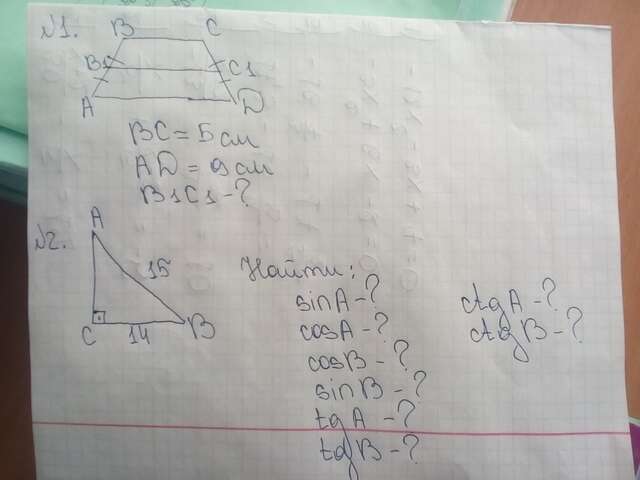 №1.
B C
B1 C1
A D
BC = 5 см
AD = 9 см
B1C1 - ?
№2.
A
15
C 14 B
Найти:
sinA - ?
cosA - ?
cosB - ?
sinB - ?
tgA - ?
tgB - ?
ctgA - ?
ctgB - ?